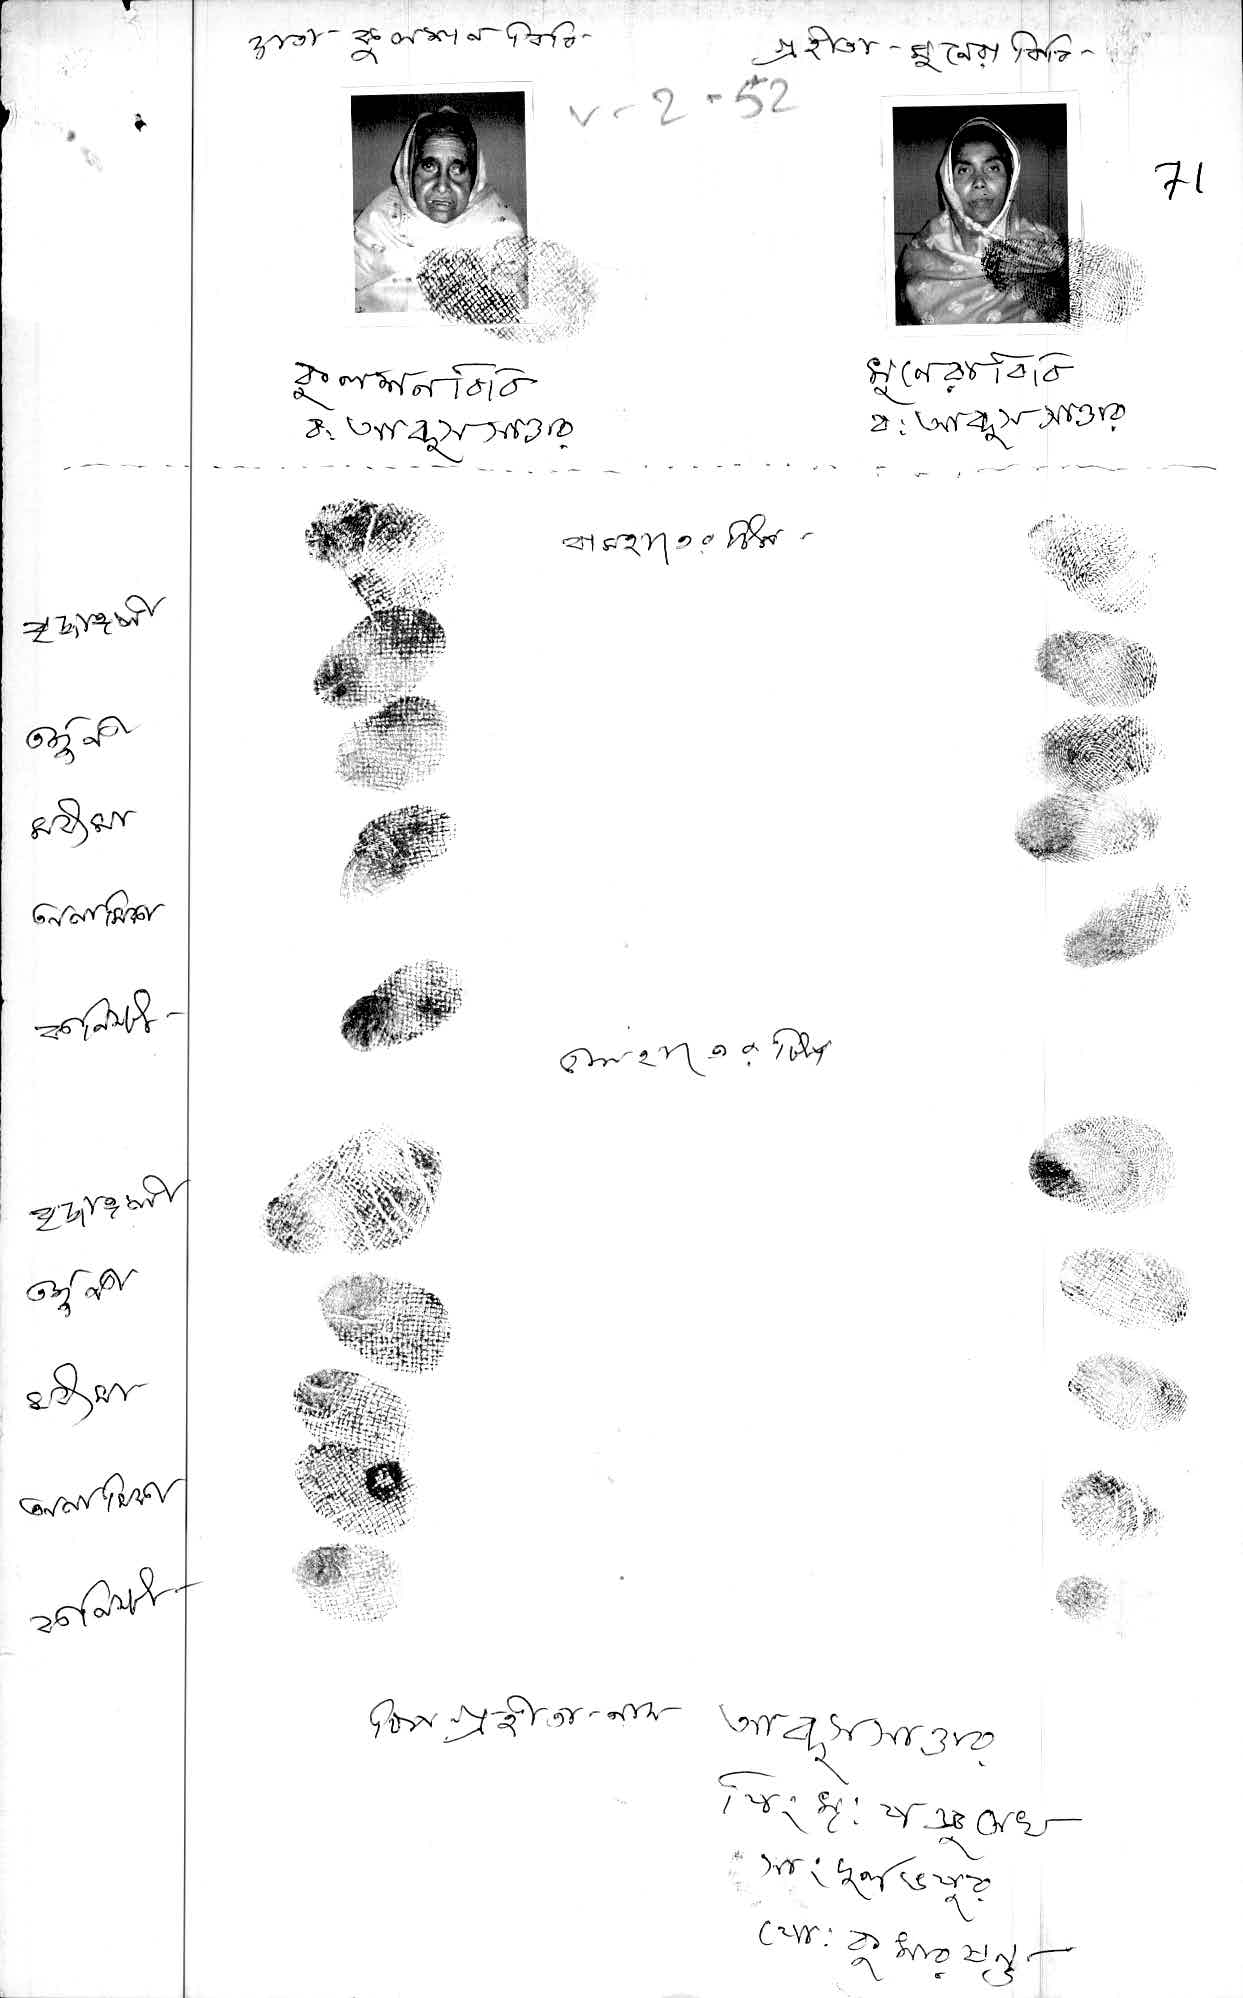 দাতা - কুলশান বিবি -
গ্রহীতা - মুনেরা বিবি -
V - 2 - 52
71
কুলশান বিবি
ব: আব্দুস সাত্তার
মুনেরা বিবি
ব: আব্দুস সাত্তার
বাম হাতের টিপ -
বৃদ্ধাঙ্গুলী
তর্জ্জনী
মধ্যমা
অনামিকা
কনিষ্ঠা -
ডান হাতের টিপ
বৃদ্ধাঙ্গুলী
তর্জ্জনী
মধ্যমা
অনামিকা
কনিষ্ঠা -
টিপ গ্রহীতা - নাম আব্দুস সাত্তার
পিং মৃ:
সাং
পো: কুমারষণ্ড -